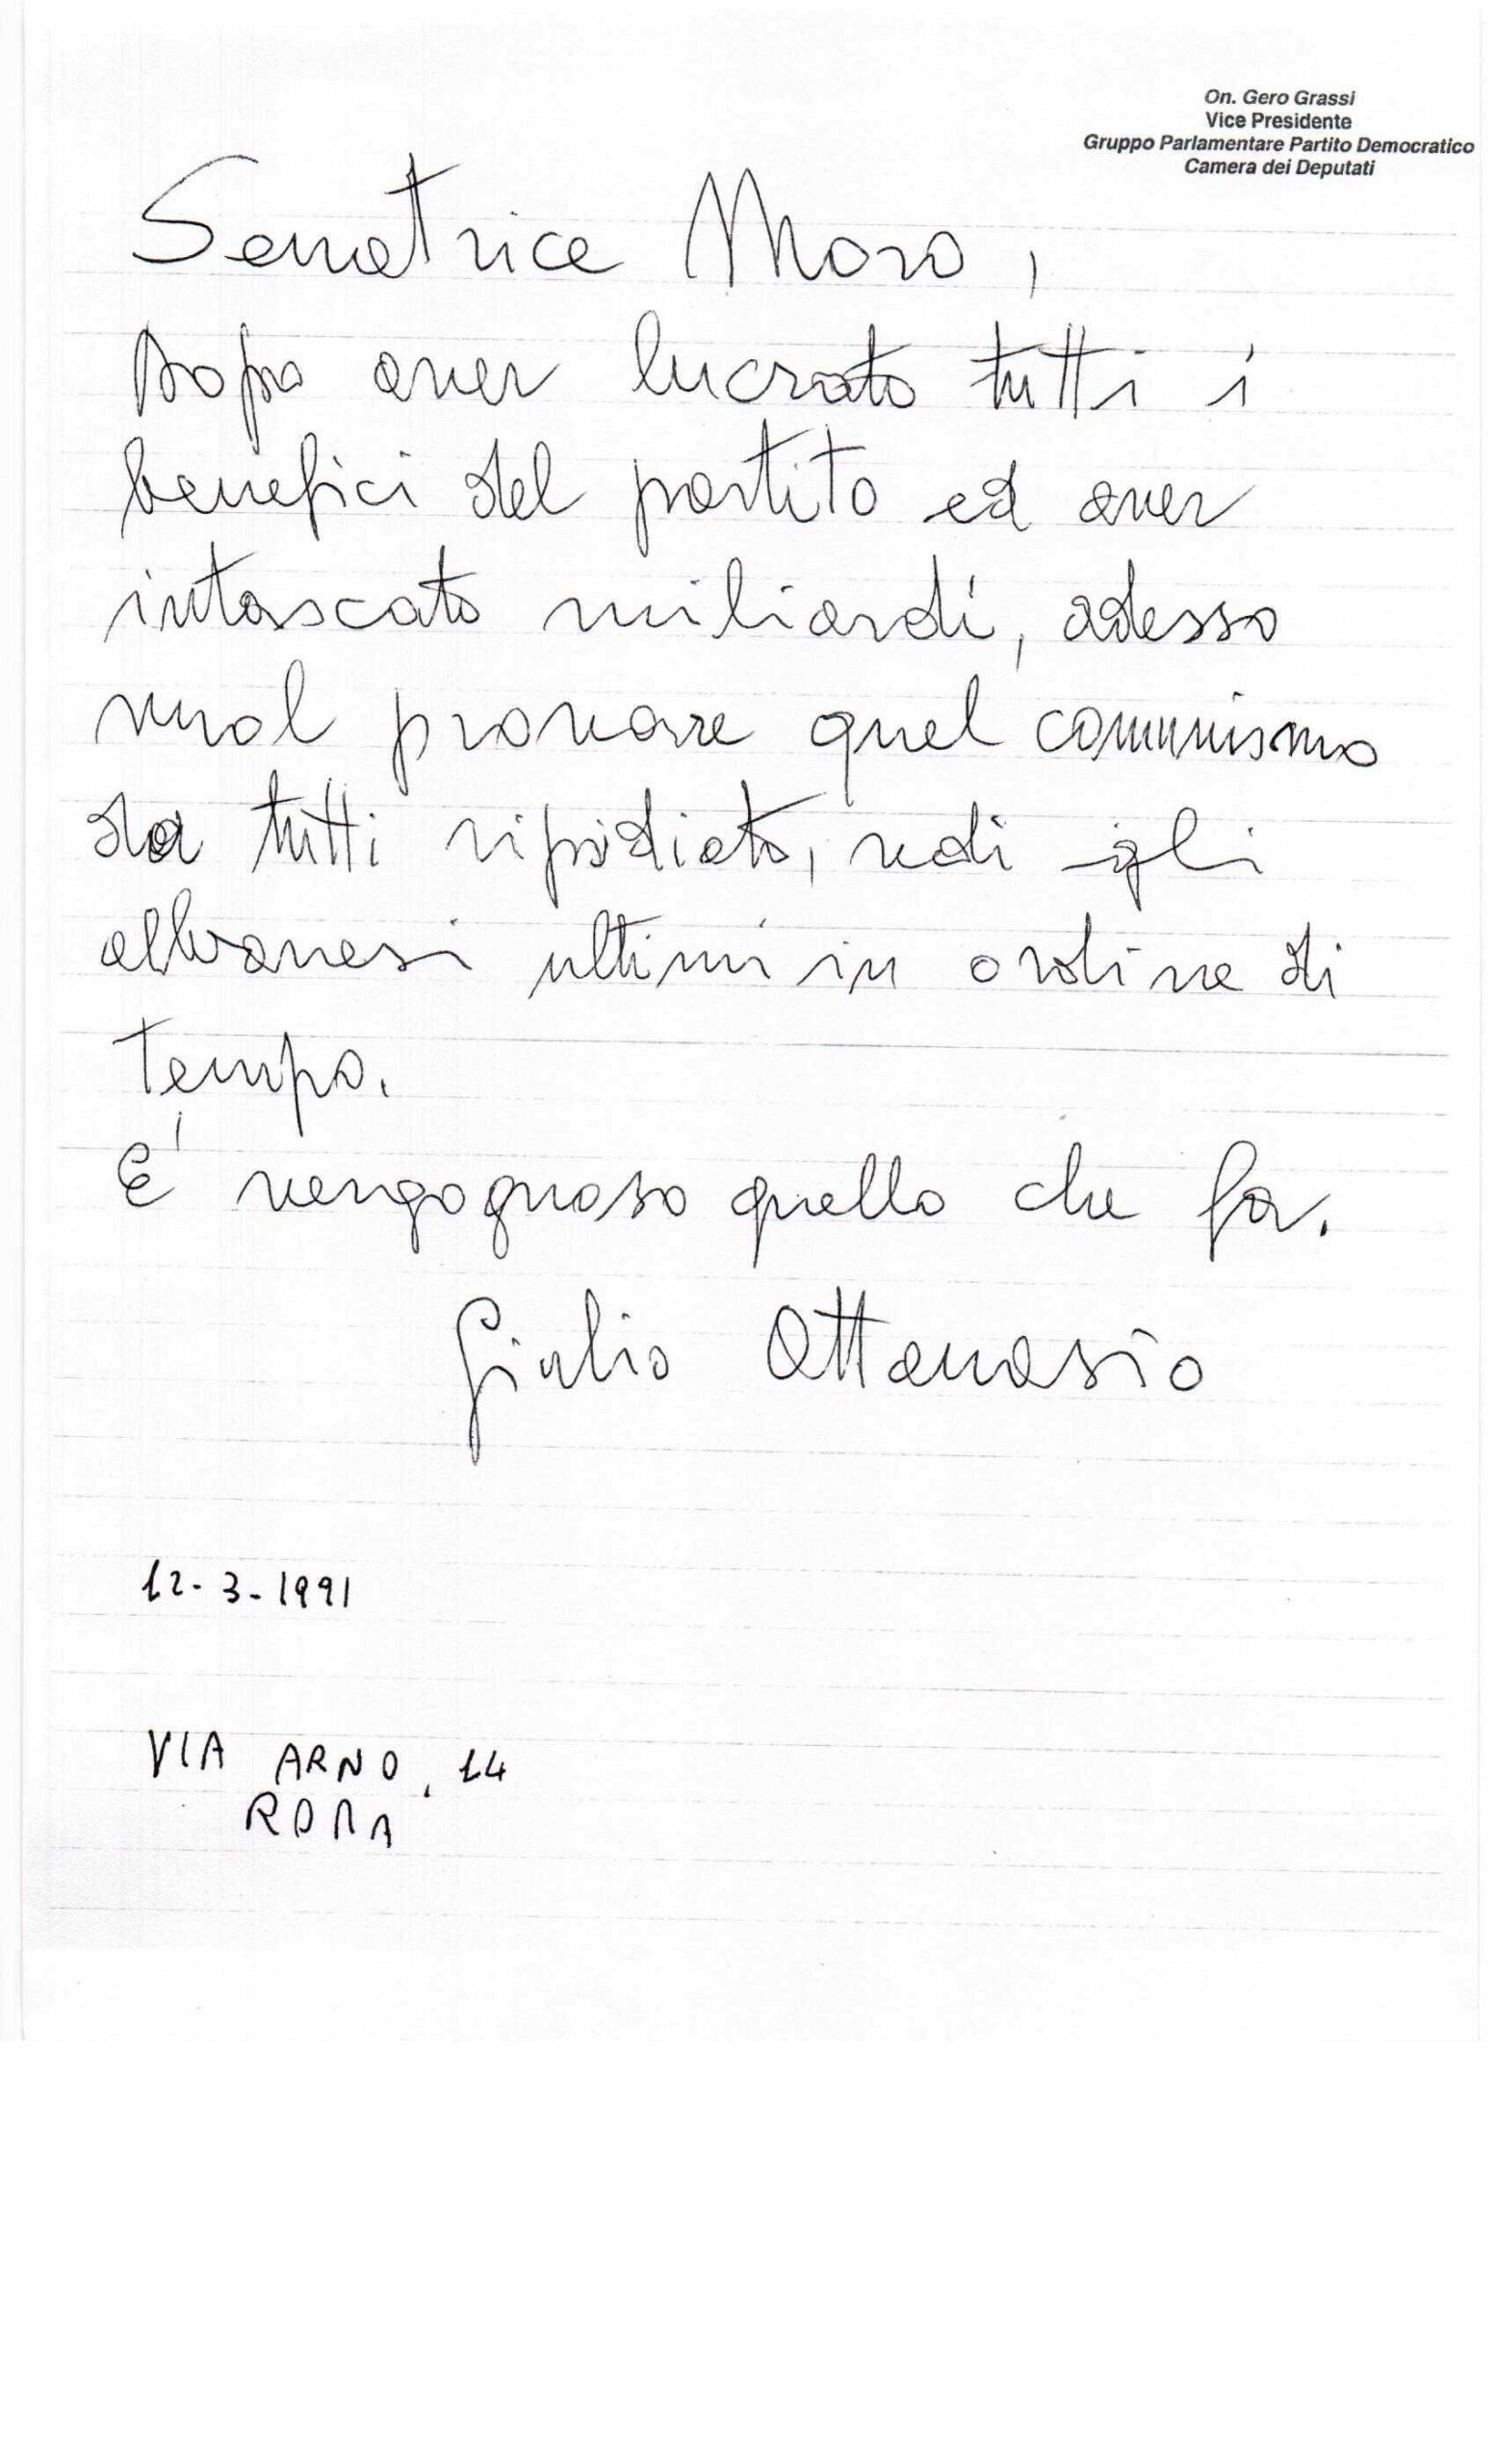 On. Gero Grassi
Vice Presidente
Gruppo Parlamentare Partito Democratico
Camera dei Deputati
Senatrice Moro,
dopo aver lucrato tutti i
benefici del partito ed aver
intascato miliardi, adesso
vuol provare quel comunismo
da tutti ripudiato, vedi gli
albanesi ultimi in ordine di
tempo.
E' vergognoso quello che fa.
Giulio Attanasio
12-3-1991
VIA ARNO, 14
ROMA